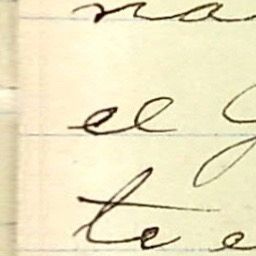 na
el
te e